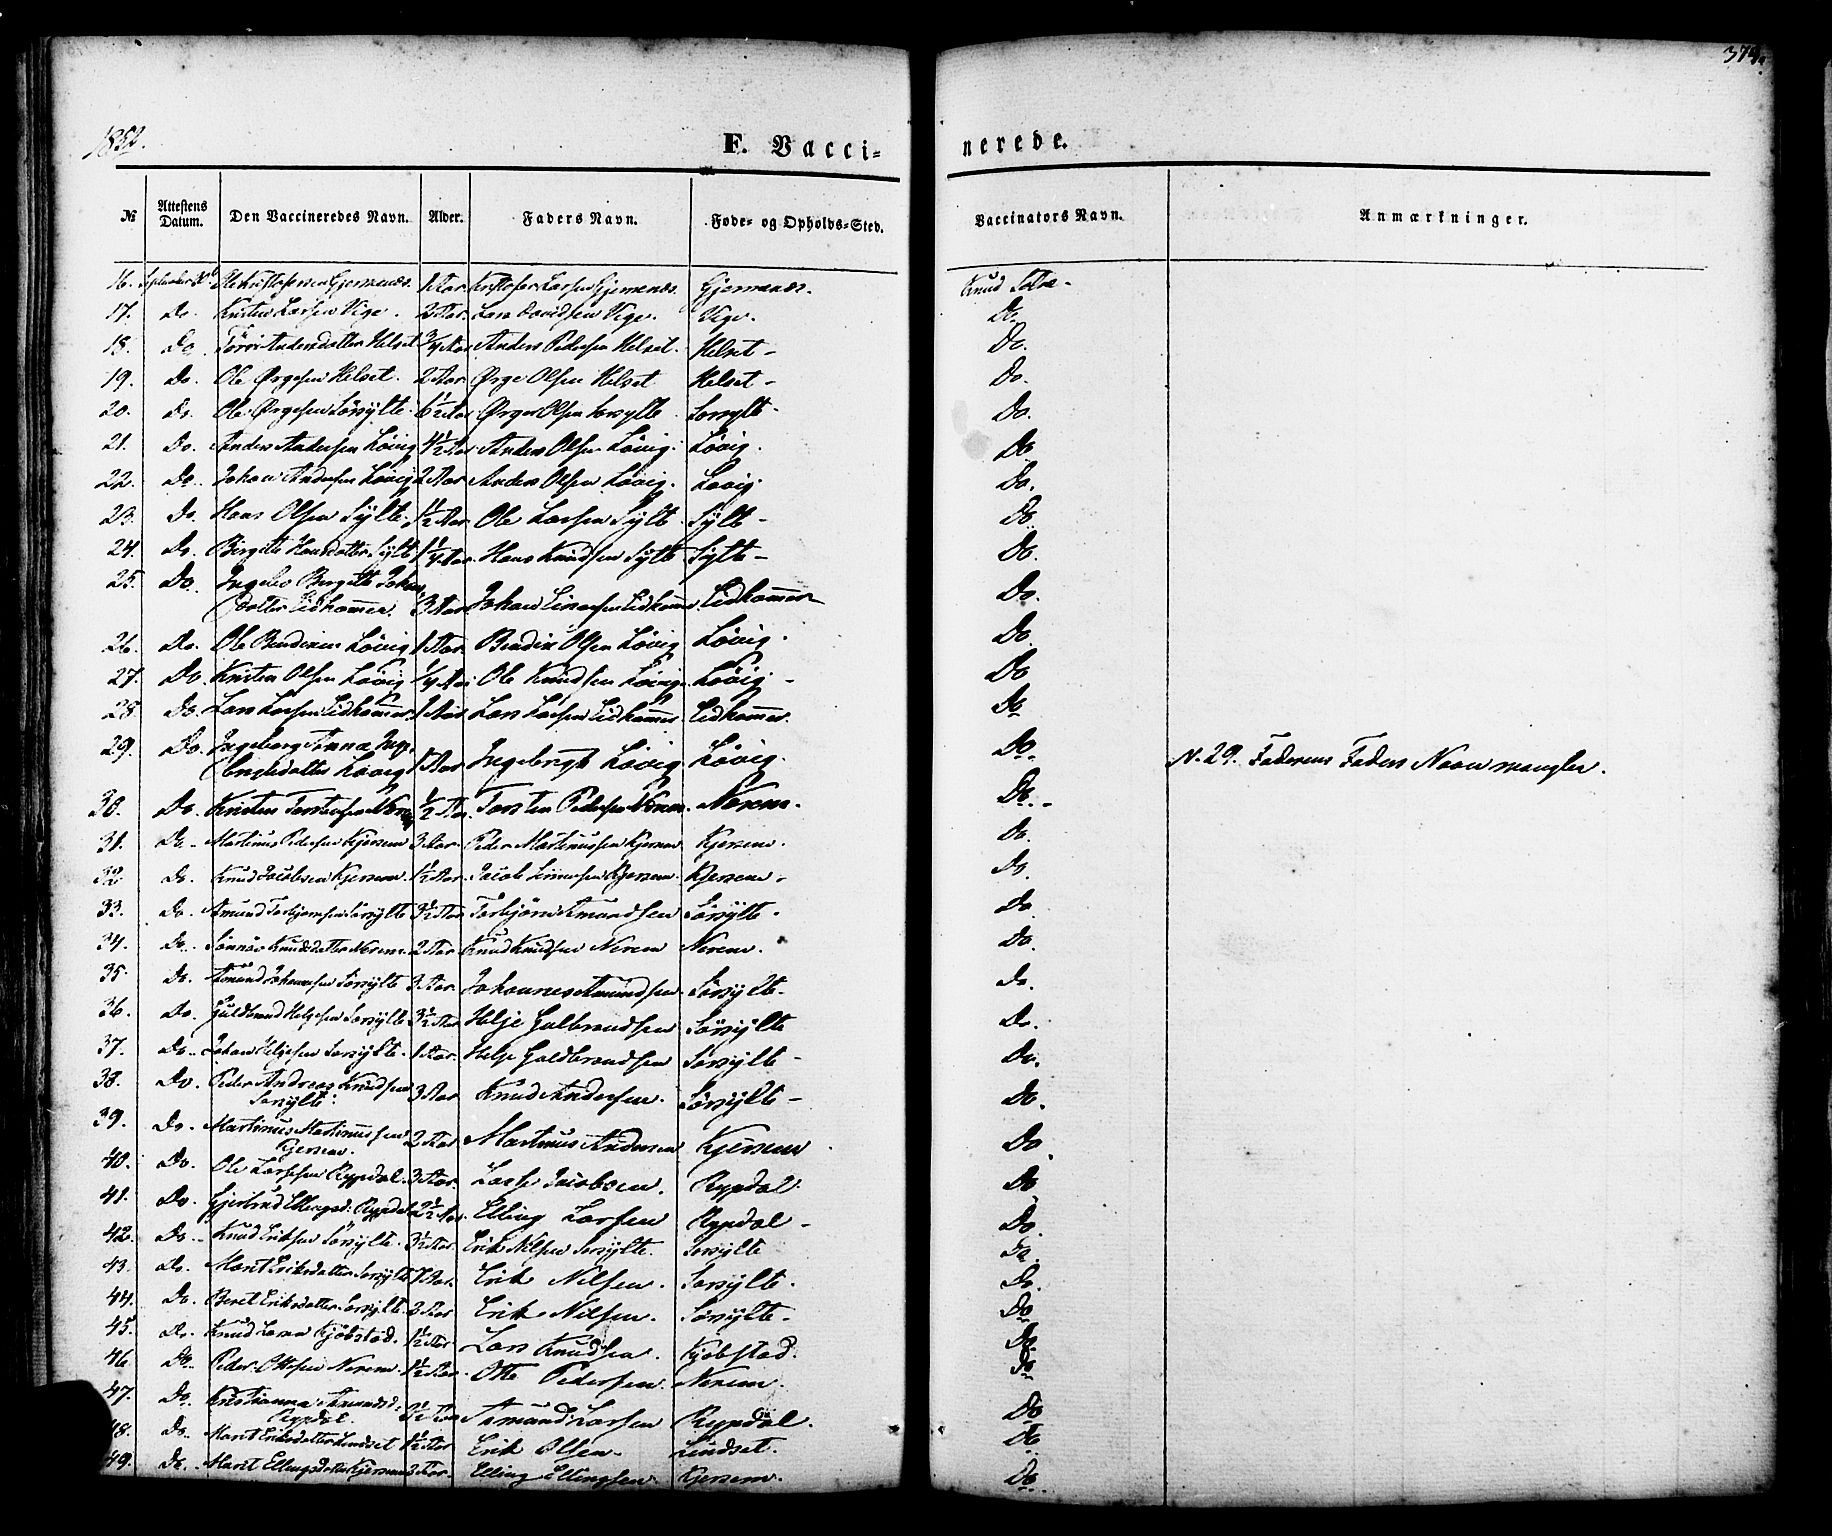 374.
1852.
F. Vacci-
nerede.
№ Attestens Datum. Den Vaccineredes Navn. Alder. Faders Navn. Føde- og Opholds-Sted. Vaccinators Navn. Anmærkninger.
16. September Ole Kristofersen Gjermenæs. 1 Aar Kristofer Larsen Gjermenæs. Gjermenæs. Knud
17. Do. Kristen Larsen Vige. 2 Aar. Lars Davidsen Vige. Vige. Do.
18. Do. Andersdatter Helset 3/4 Aar Anders Pedersen Helset. Helset - Do.
19. Do. Ole Ørgesen Helset. 2 Aar Ørge Olsen Helset Helset - Do.
20. Do. Ole Ørgesen Sørsylte. 6 1/2 Aar Ørge Olsen Sorsylte Sorsylt - Do.
21. Do. Anders Andersen Lövig 4 1/2 Aar Anders Olsen Lövig. Lövig. Do
22. Do. Johan Andersen Lövig 2 Aar Anders Olsen Lövig. Lovig. Do.
23. Do. Hans Olsen Sylte. 1 1/2 Aar Ole Larsen Sylte Sylte - Do
24. Do. Birgitte Hansdatter Sylte 1 1/4 Aar Hans Knudsen Sylte Sylte - Do.
25. Do. Bergitte Johans
datter Eidhammer. 3 Aar Johan Einersen Eidhammer Eidhammer Do.
26. Do. Ole Bendixen Lövig 1 Aar Bendix Olsen Lövig Lövig. Do
27. Do. Kristen Olsen Lövig 1/4 Aar Ole Knudsen Lövig. Lövig - Do
28. Do. Lars Larsen Eidhammer 1 Aar Lars Larsen Eidhammer Eidhammer. Do
29. Do. Ingeborg Anna Inge-
brigtsdatter Lövig 1 Aar Ingebrigt Lövig Lövig. Do. N. 29. Faderens Faders Navn mangler.
30. Do. Kristen Torstensen Nerem 1/2 Aar. Torsten Pedersen Nerem Nerem. Do. -
31. Do. Martinus Pedersen Kjersem 3 Aar. Peder Martinussen Kjersem Kjersem. Do.
32. Do. Knud Jacobsen Kjersem. 1 1/2 Aar. Jacob Kjersem. Kjersem. Do.
33. Do. Amund Torbjørnsen Sörsylte 3 1/2 Aar Torbjörn Amundsen Sörsylte. Do
34. Do. Knudsdatter Nerem 2 Aar Knud Knudsen Nerem Nerem. Do.
35. Do. Amund Johannesen Sörsylte 3 Aar. Johannes Amundsen. Sörsylte. Do.
36. Do. Guldbrand Helgesen Sorsylte 3 1/2 Aar Helje Gulbrandsen Sörsylte Do.
37. Do. Johan Helgesen Sorsylte. 1 Aar. Helje Guldbrandsen Sorsylte - Do.
38. Do. Peder Andreas Knudsen
Sorsylte. 3 Aar Knud Andersen. Sörsylte - Do.
39. Do. Martinus Martinussen
Kjersem. 2 Aar Martinus Andersen Kjersem Do
40. Do. Ole Larsen Rypdal. 3 Aar. Lars Jacobsen. Rypdal. Do
41. Do. Gjertrud Ellingsd. Rypdal 2 1/2 Aar. Elling Larsen Rypdal - Do.
42. Do. Knud Eriksen Sörsylte. 3 1/2 Aar. Erik Nilsen Sorsylte. Sorsylte Do.
43. Do. Marit Eriksdatter Sorsylte 7 Aar. Erik Nilsen. Sorsylte. Do.
44. Do. Beret Eriksdatter Sorsylte. 3 Aar Erik Nilsen. Sörsylte. Do
45. Do. Knud Larsen Kjöbstad. 1 1/2 Aar Lars Knudsen. Kjöbstad. Do.
46. Do. Peder Ottesen Nerem 1 1/2 Aar. Otte Pedersen. Nerem Do
47. Do. Kristianna Amundsd.
Rypdal. 2 1/2 Aar Amund Larsen Rypdal. Do
48. Do. Marit Eriksdatter Lindset 1 1/2 Aar Erik Olsen. Lindset. Do
49. Do. Marit Ellingsdatter Kjersem 3 Aar. Elling Ellingsen. Kjersem. Do.